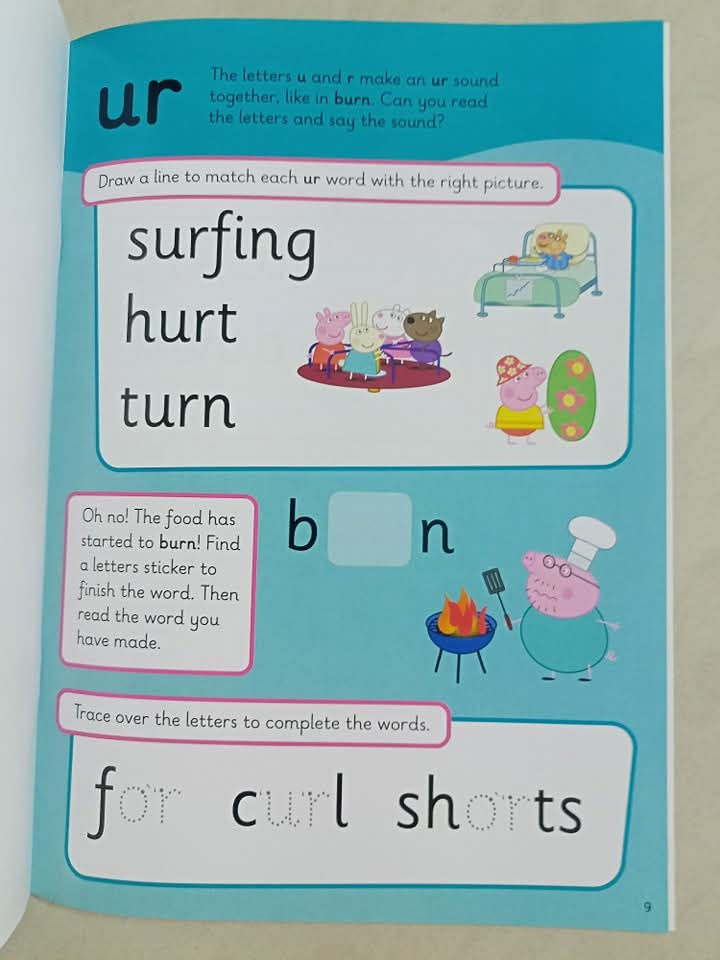 ur
The letters u and r make an ur sound
together, like in burn. Can you read
the letters and say the sound?
Draw a line to match each ur word with the right picture.
surfing
hurt
turn
Oh no! The food has
started to burn! Find
a letters sticker to
finish the word. Then
read the word you
have made.
b n
Trace over the letters to complete the words.
for curl shorts
9